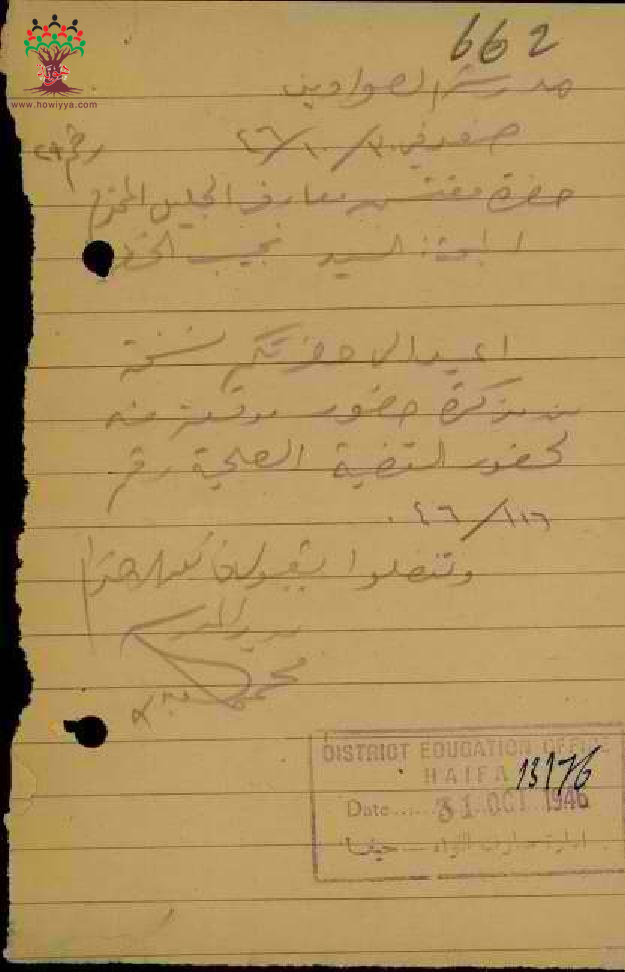 www.howiyya.com
662
مدرسة الصوادين
صفد في ٣٠/١٠/٤٦
رقم ٢٩
حضرة مفتش معارف الجليل المحترم
السيد نجيب
اعيد الى حضرتكم نسخة
من مذكرة حضور موقعة منه
لحضور القضية الصلحية رقم
١١٦/٤٦.
وتفضلوا بقبول فائق الاحترام
مدير المدرسة
محمد
DISTRICT EDUCATION OFFICE
HAIFA
13176
Date 31 OCT 1946
ادارة معارف اللواء — حيفا